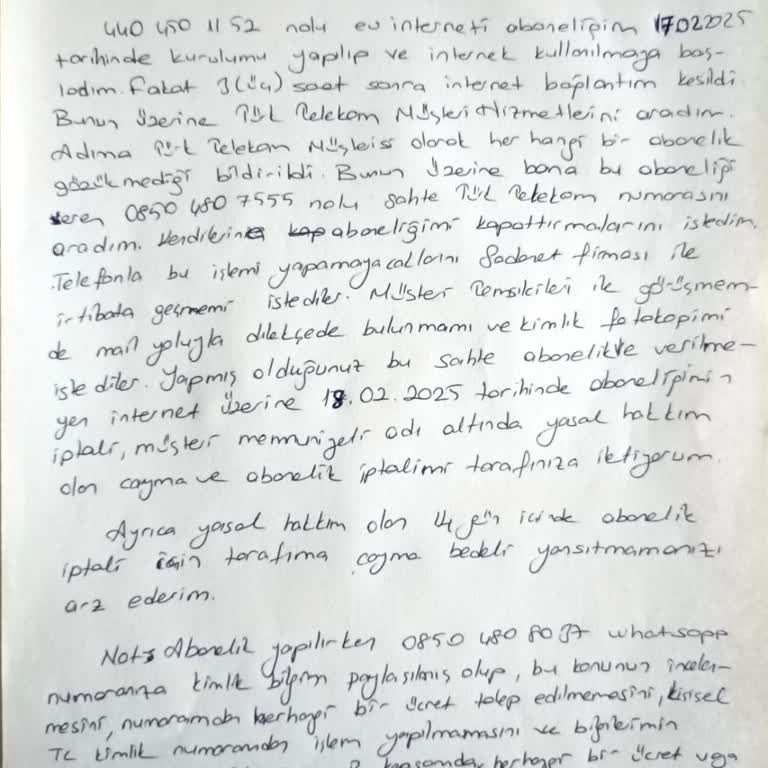 440 450 11 52 nolu ev interneti aboneliğim 17.02.2025
tarihinde kurulumu yapılıp ve internet kullanılmaya baş-
ladım. Fakat 3 (üç) saat sonra internet bağlantım kesildi.
Bunun üzerine Türk Telekom Müşteri Hizmetlerini aradım.
Adıma Türk Telekom Müşterisi olarak her hangi bir abonelik
gözükmediği bildirildi. Bunun üzerine bana bu aboneliği
veren 0850 480 7555 nolu sahte Türk Telekom numarasını
aradım. Kendilerine aboneliğimi kapattırmalarını istedim.
Telefonla bu işlemi yapamayacaklarını Sadanet firması ile
irtibata geçmemi istediler. Müşteri Temsilcileri ile görüşmem-
de mail yoluyla dilekçede bulunmamı ve kimlik fotokopimi
istediler. Yapmış olduğunuz bu sahte abonelikte verilme-
yen internet üzerine 18.02.2025 tarihinde aboneliğimin
iptali, müşteri memnuniyeti adı altında yasal hakkım
olan cayma ve abonelik iptalimi tarafınıza iletiyorum.
Ayrıca yasal hakkım olan 14 gün içinde abonelik
iptali için tarafıma cayma bedeli yansıtmamanızı
arz ederim.
Not: Abonelik yapılırken 0850 480 80 37 whatsapp
numaranıza kimlik bilgim paylaşılmış olup, bu konunun incelen-
mesini, numaramdan herhangi bir ücret talep edilmemesini, kişisel
TC kimlik numaramdan işlem yapılmamasını ve bilgilerimin
herhangi bir ücret veya